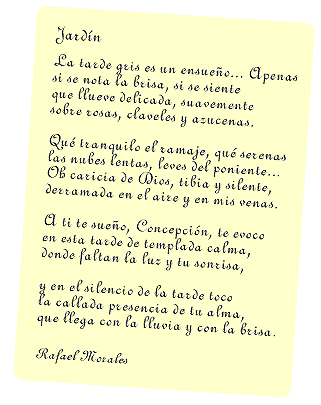 Jardín
La tarde gris es un ensueño... Apenas
si se nota la brisa, si se siente
que llueve delicada, suavemente
sobre rosas, claveles y azucenas.
Qué tranquilo el ramaje, qué serenas
las nubes lentas, leves del poniente...
Oh caricia de Dios, tibia y silente,
derramada en el aire y en mis venas.
A ti te sueño, Concepción, te evoco
en esta tarde de templada calma,
donde faltan la luz y tu sonrisa,
y en el silencio de la tarde toco
la callada presencia de tu alma,
que llega con la lluvia y con la brisa.
Rafael Morales